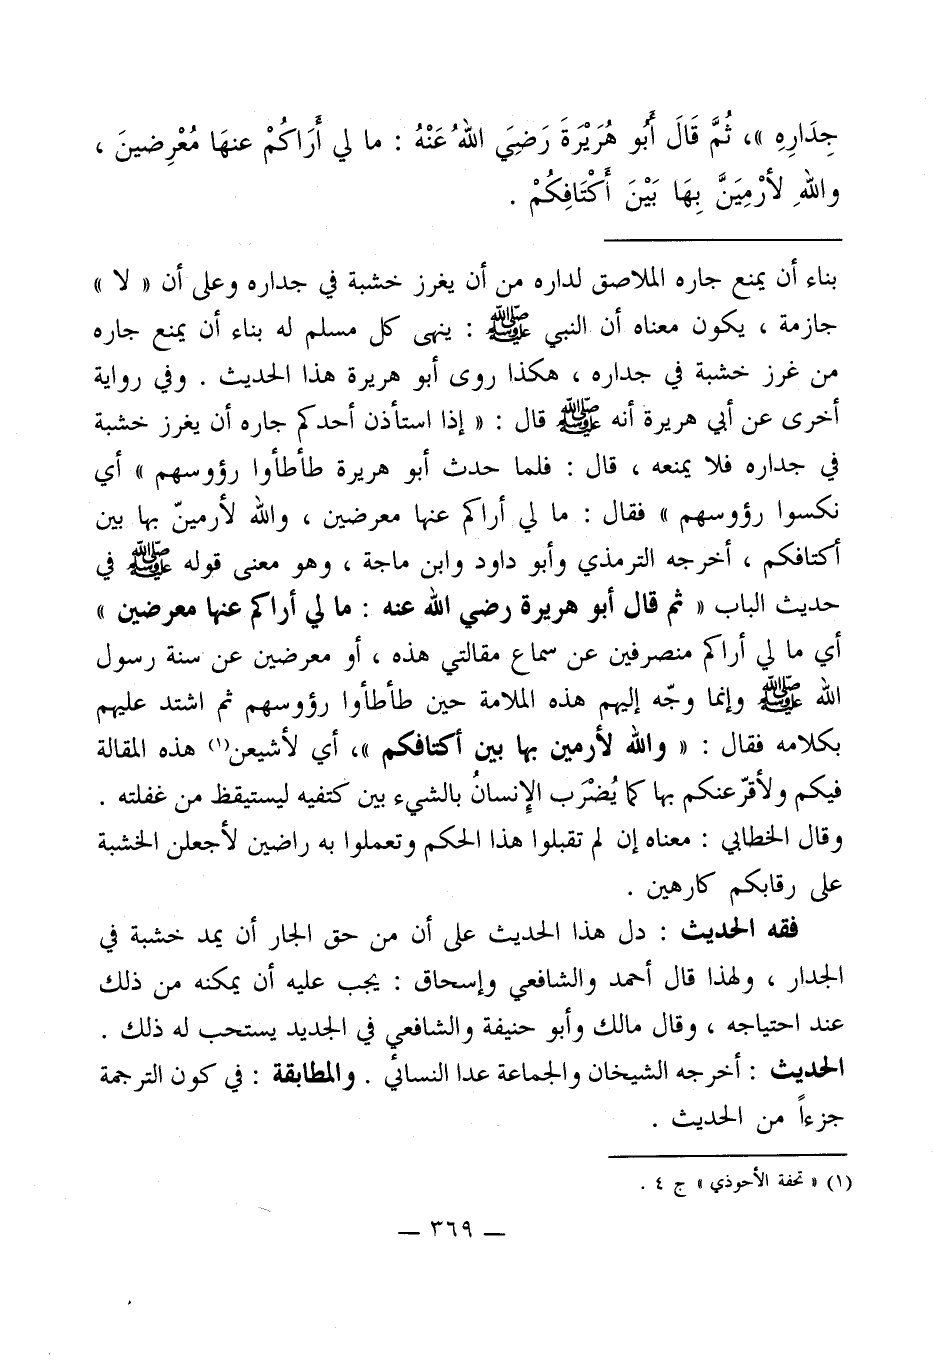 جِدَارِهِ »، ثُمَّ قَالَ أَبُو هُرَيْرَةَ رَضِيَ اللهُ عَنْهُ : ما لي أَرَاكُمْ عنهَا مُعْرِضينَ ،
واللهِ لأَرْمِيَنَّ بِهَا بَيْنَ أَكْتَافِكُمْ .
بناء أن يمنع جاره الملاصق لداره من أن يغرز خشبة في جداره وعلى أن « لا »
جازمة ، يكون معناه أن النبي ﷺ : ينهى كل مسلم له بناء أن يمنع جاره
من غرز خشبة في جداره ، هكذا روى أبو هريرة هذا الحديث . وفي رواية
أخرى عن أبي هريرة أنه ﷺ قال : « إذا استأذن أحدكم جاره أن يغرز خشبة
في جداره فلا يمنعه ، قال : فلما حدث أبو هريرة طأطأوا رؤوسهم » أي
نكسوا رؤوسهم » فقال : ما لي أراكم عنها معرضين ، والله لأرمينّ بها بين
أكتافكم ، أخرجه الترمذي وأبو داود وابن ماجة ، وهو معنى قوله ﷺ في
حديث الباب « ثم قال أبو هريرة رضي الله عنه : ما لي أراكم عنها معرضين »
أي ما لي أراكم منصرفين عن سماع مقالتي هذه ، أو معرضين عن سنة رسول
الله ﷺ وإنما وجّه إليهم هذه الملامة حين طأطأوا رؤوسهم ثم اشتد عليهم
بكلامه فقال : « والله لأرمين بها بين أكتافكم »، أي لأشيعن(١) هذه المقالة
فيكم ولأقرّعنكم بها كما يُضْرَب الإنسانُ بالشيء بين كتفيه ليستيقظ من غفلته .
وقال الخطابي : معناه إن لم تقبلوا هذا الحكم وتعملوا به راضين لأجعلن الخشبة
على رقابكم كارهين .
فقه الحديث : دل هذا الحديث على أن من حق الجار أن يمد خشبة في
الجدار ، ولهذا قال أحمد والشافعي وإسحاق : يجب عليه أن يمكنه من ذلك
عند احتياجه ، وقال مالك وأبو حنيفة والشافعي في الجديد يستحب له ذلك .
الحديث : أخرجه الشيخان والجماعة عدا النسائي . والمطابقة : في كون الترجمة
جزءاً من الحديث .
(١) « تحفة الأحوذي » ج ٤ .
— ٣٦٩ —